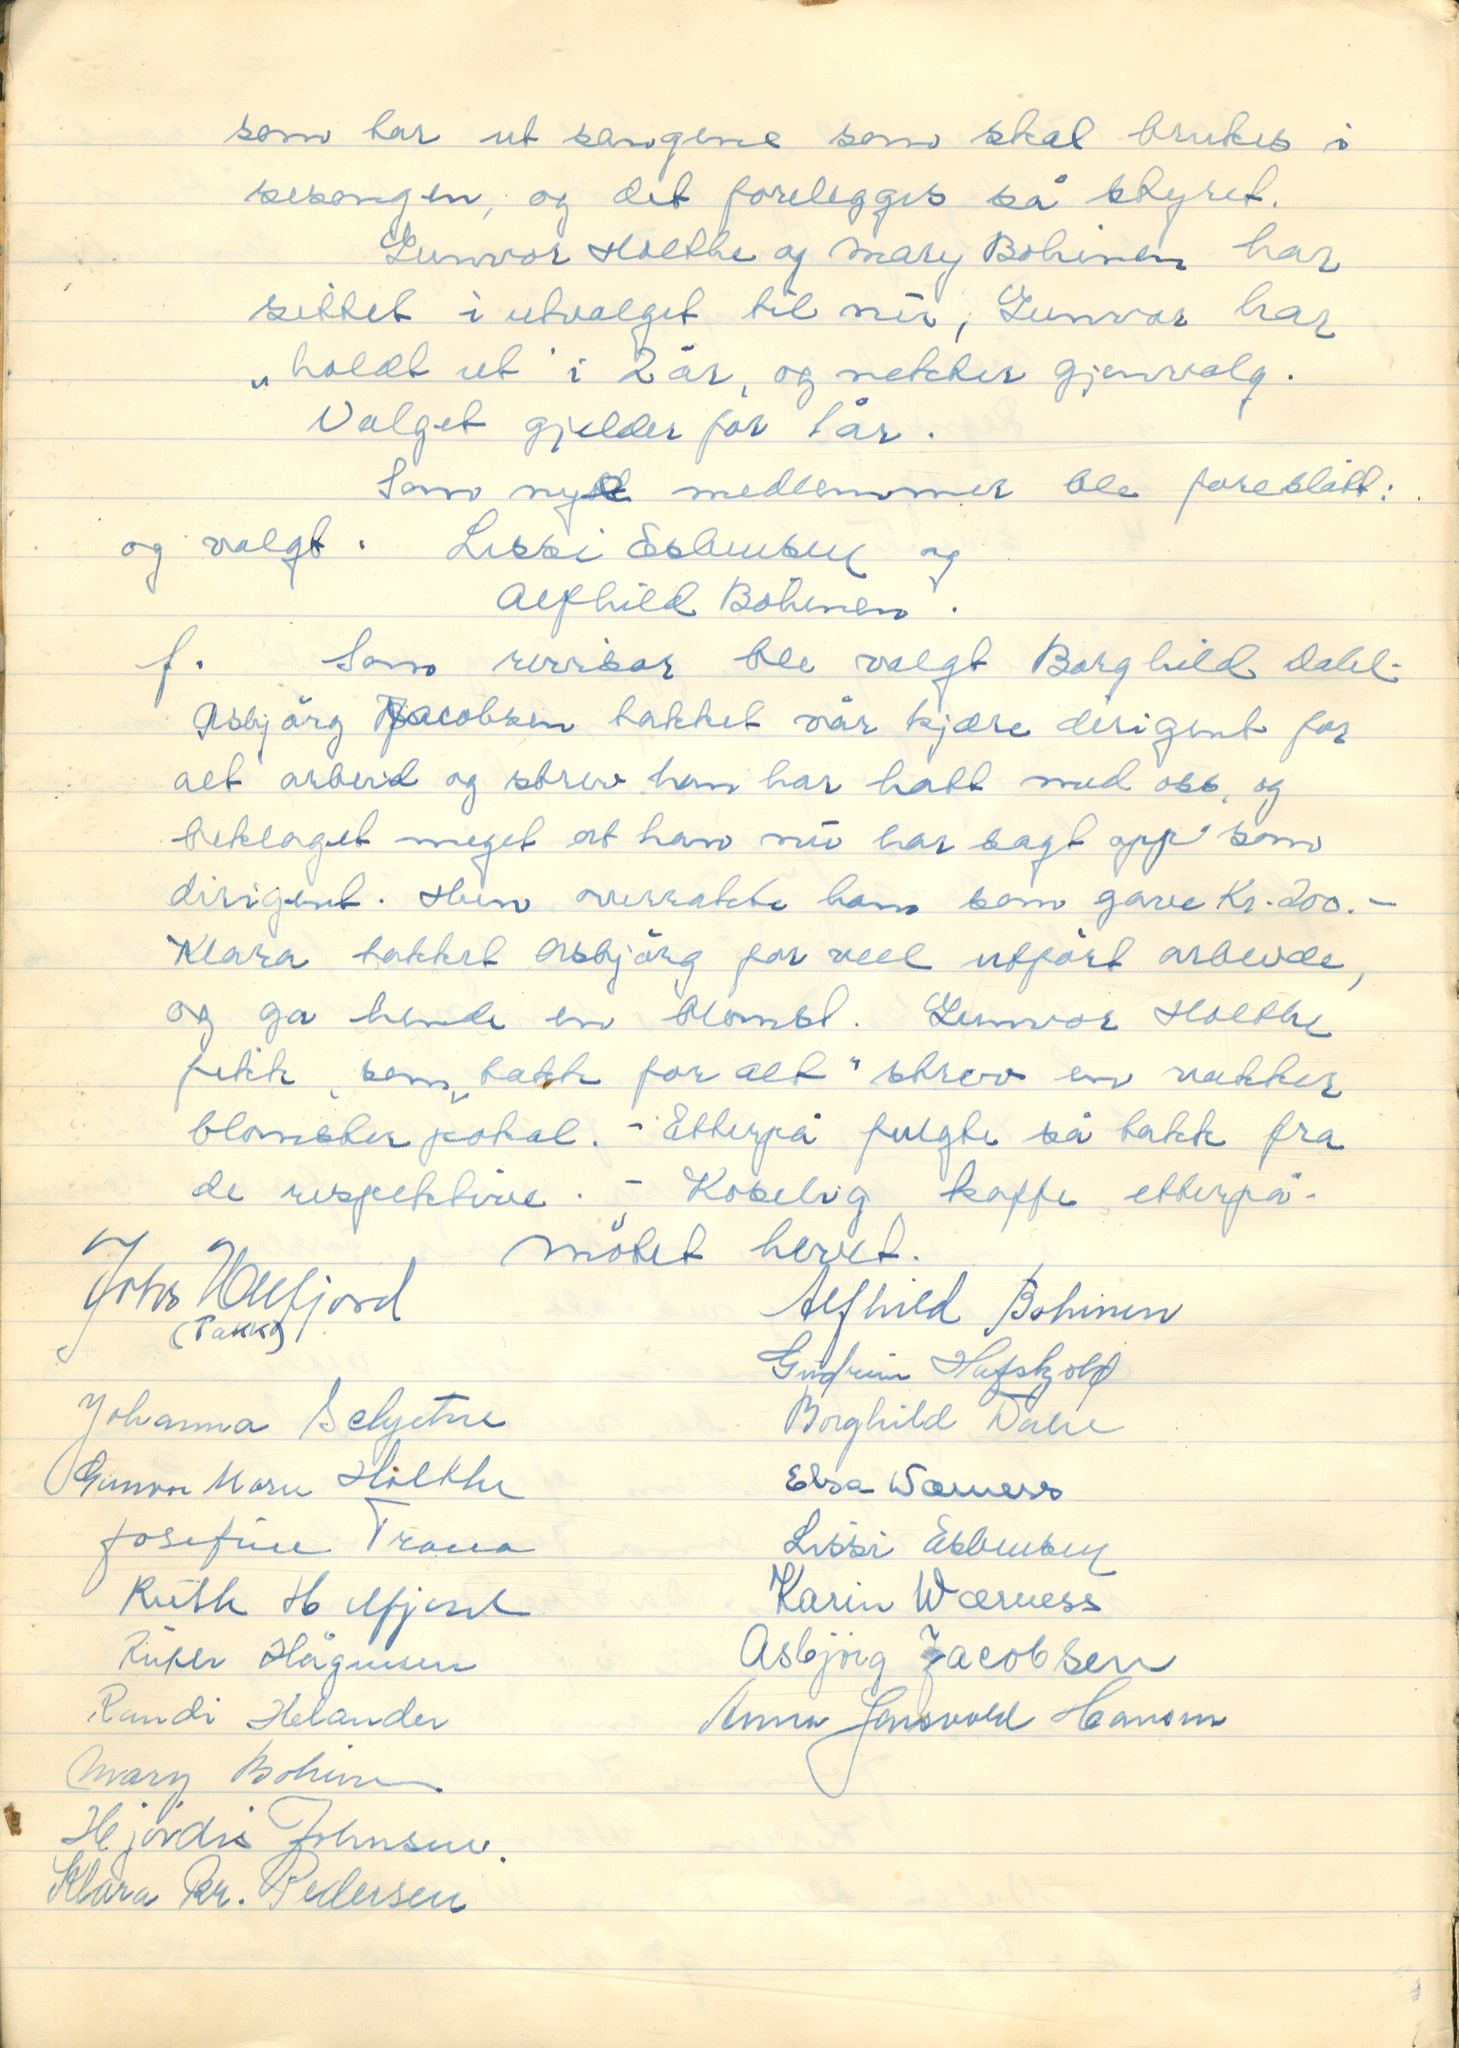 som tar ut sangene som skal brukes i
sesongen, og det forelegges så styret.
Gunvor Holthe og Mary Bohinen har
sittet i utvalget til nu, Gunvor har
"holdt ut" i 2 år, og nekter gjenvalg.
Valget gjelder for 1 år.
Som nye medlemmer ble foreslått:
og valgt. Lissi Esbensen og
Alfhild Bohinen.
f. Som revisor ble valgt Borghild Dahl.
Asbjörg Jacobsen takket vår kjære dirigent for
alt arbeid og strev han har hatt med oss, og
beklaget meget at han nu har sagt opp som
dirigent. Hun overrakte ham som gave Kr. 200.-
Klara takket Asbjörg for vel utfört arbeide,
og ga hende en blomst. Gunvor Holthe
fikk, som "takk for alt" strev en vakker
blomsterpokal. - Etterpå fulgte så takk fra
de respektive. - Koselig kaffe etterpå.
Mötet hevet.
Johs Ulfjord
(Takk)
Alfhild Bohinen
Gudrun Hafskjold
Johanna
Borghild
Gunvor Marie Holthe
Elsa Wærness
Josefine
Lissi Esbensen
Ruth
Karin Wærness
Asbjörg Jacobsen
Randi Helander
Anna Hansen
Mary Bohinen
Hjördis Johnsen.
Klara Kr. Pedersen